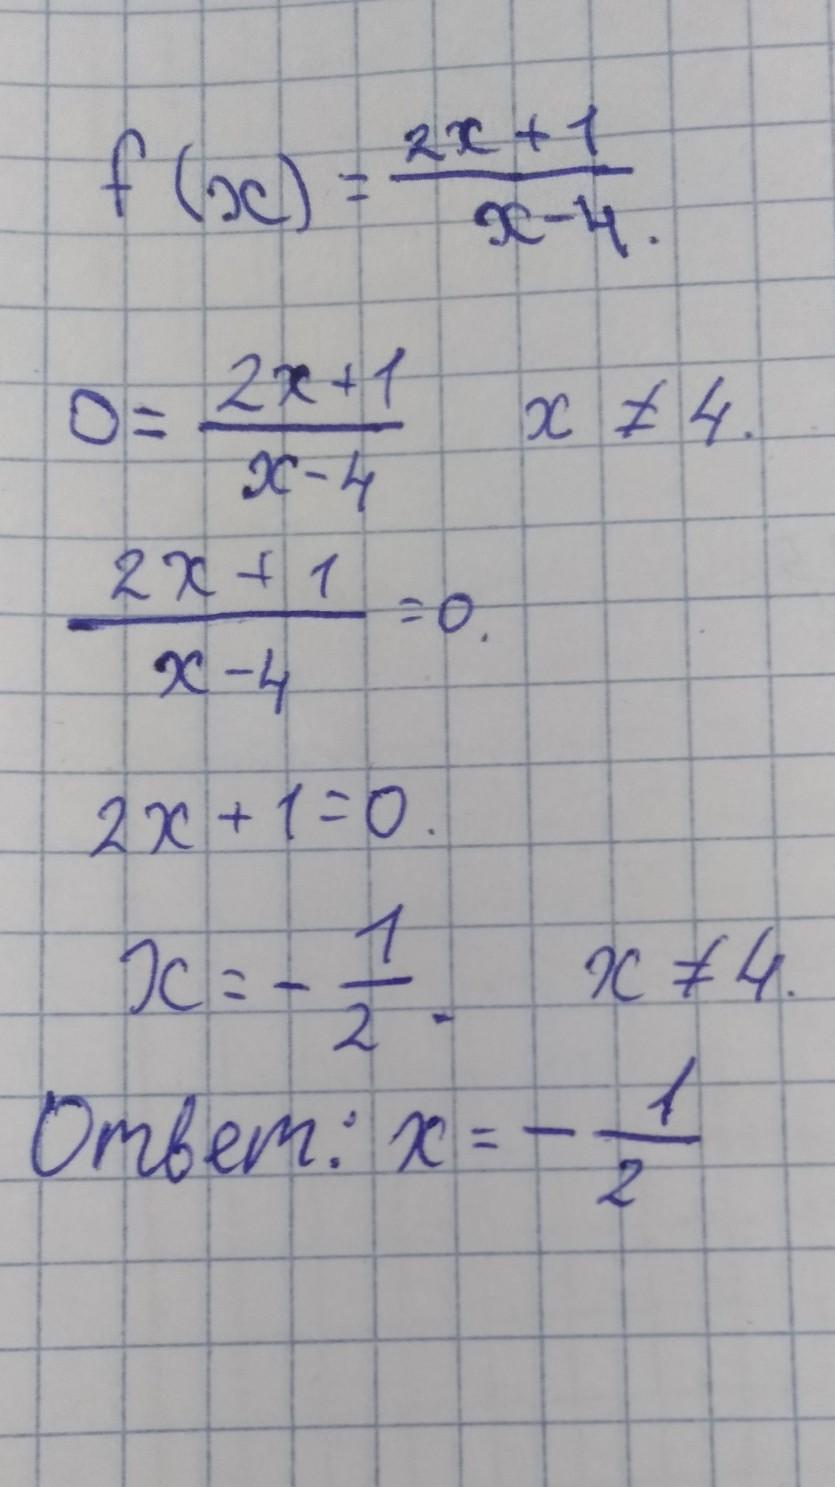 f(x) = (2x + 1)/(x - 4).
0 = (2x + 1)/(x - 4) x ≠ 4.
(2x + 1)/(x - 4) = 0.
2x + 1 = 0.
x = - 1/2. x ≠ 4.
Ответ: x = - 1/2